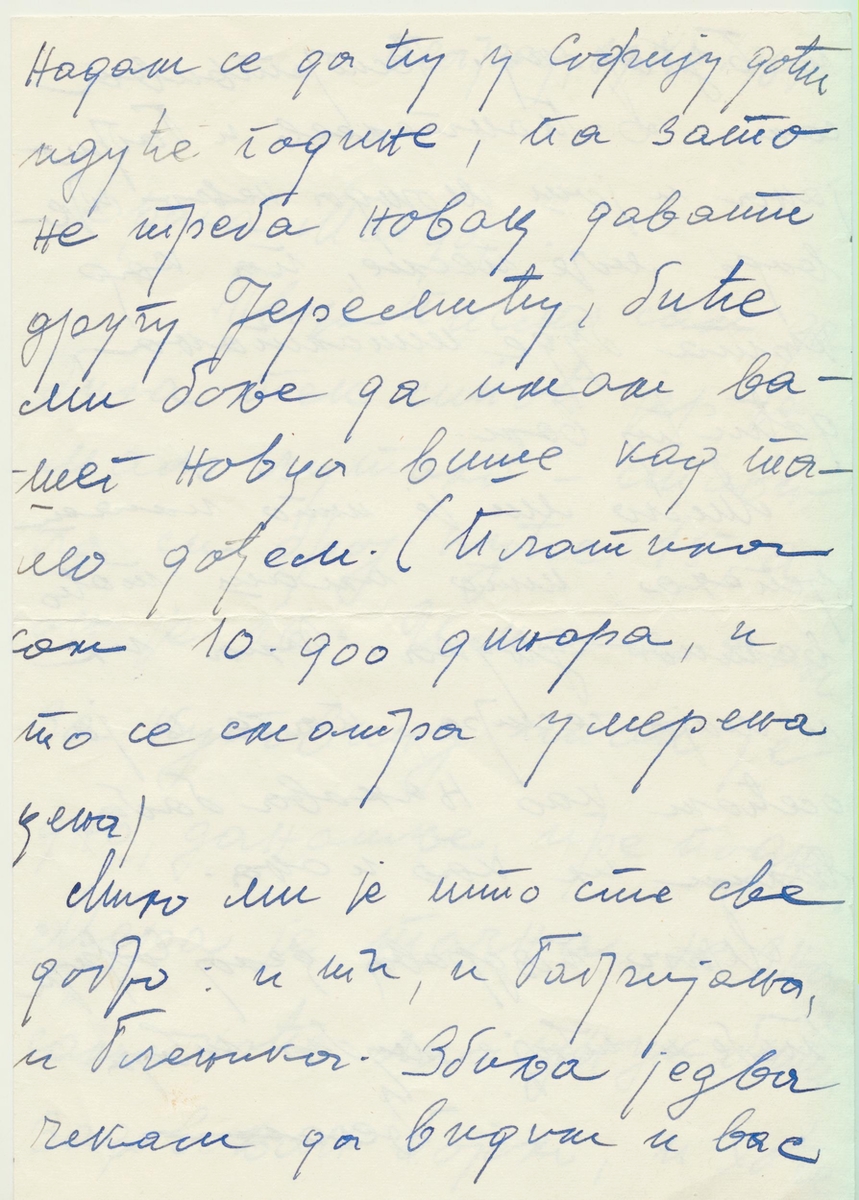 Надам се да ћу у Софију доћи
идуће године, па зато
не треба новац давати
другу Јеремићу, биће
ми боље да имам ва-
шег новца више кад та-
мо дођем. (Платила
сам 10.000 динара, и
то се сматра умерена
цена)
Мило ми је што сте све
добро: и ти, и Габријана,
и Бленика. Збиља једва
чекам да видим и вас